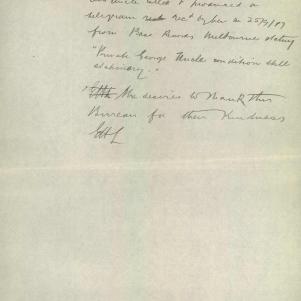 called & produced a
telegram rec'd by her on 25/9/17
from Base Records Melbourne stating
"Private George Nuttle condition still
stationary."
She desires to thank this
Bureau for their kindness